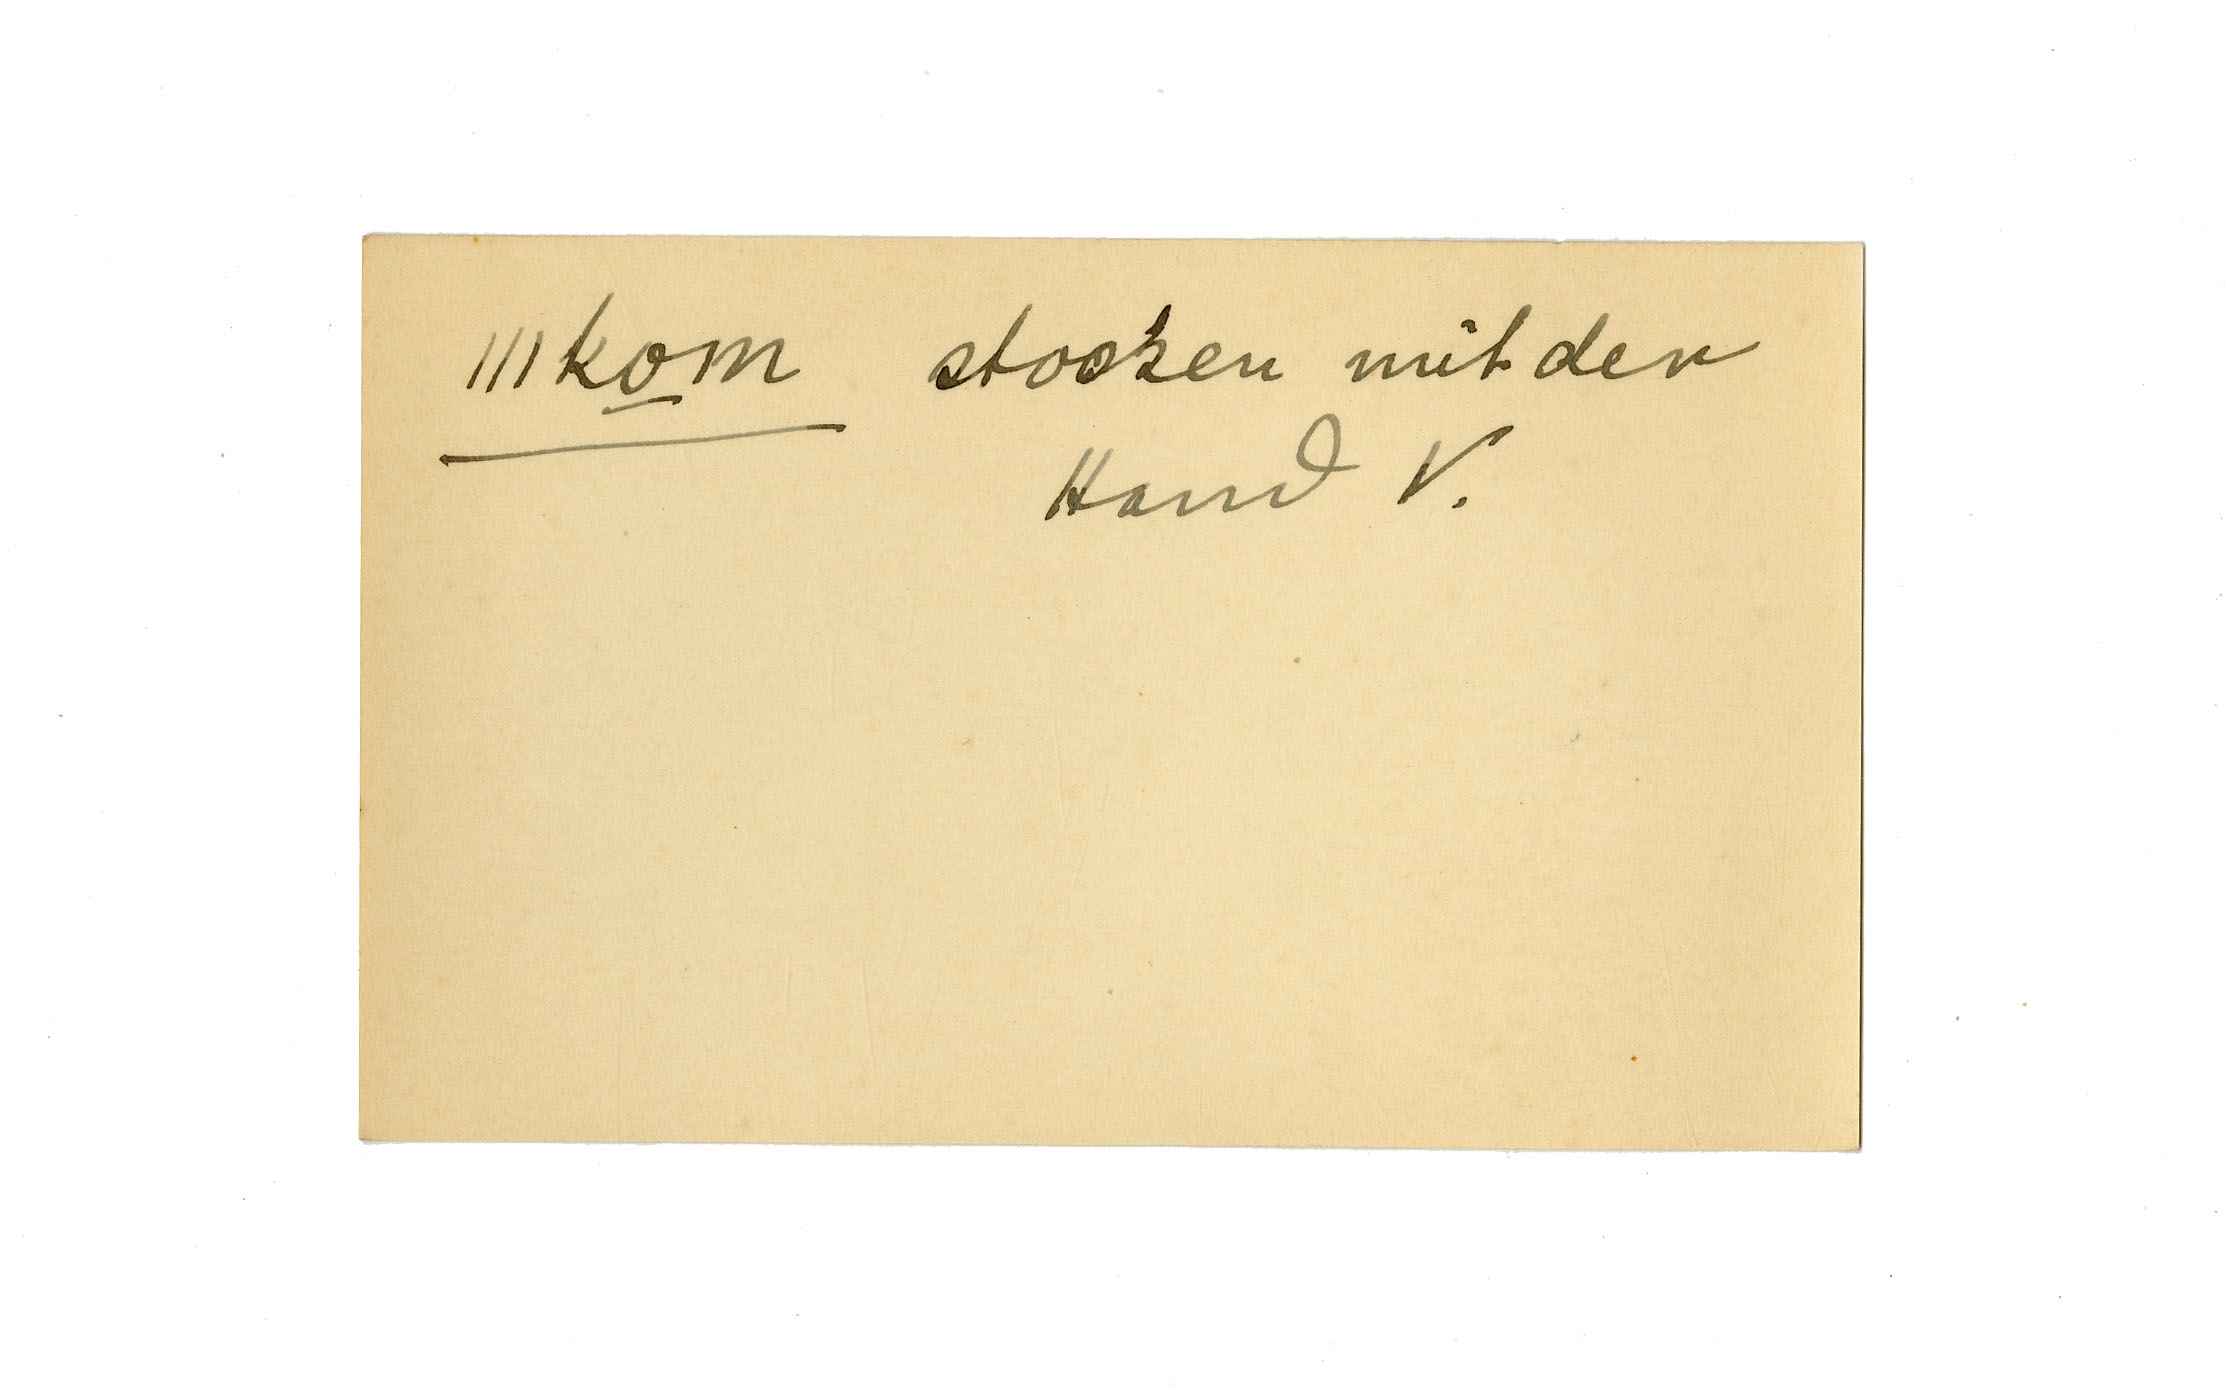 ///ko̲m stoszen mit der
Hand V.